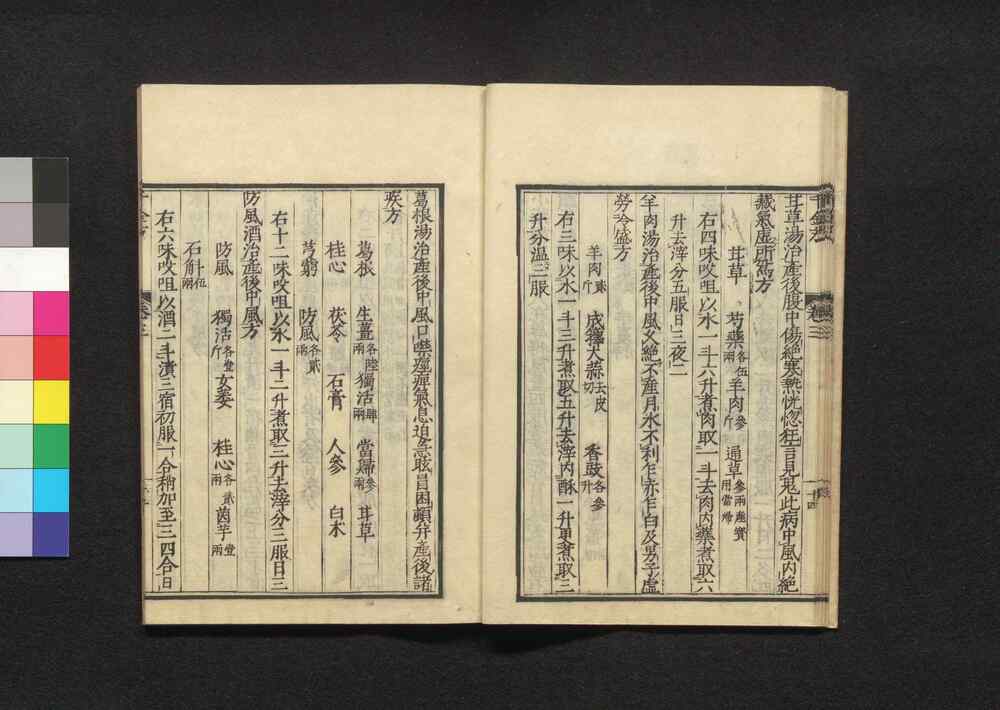 甘草湯治產後腹中傷絕寒熱恍惚狂言見鬼此病中風內絕
藏氣虛所為方
甘草 芍藥各伍兩 羊肉參斤 通草參兩產寶用當歸
右四味㕮咀以水一斗六升煮肉取一斗去肉內藥煮取六
升去滓分五服日三夜二
羊肉湯治產後中風久絕不產月水不利乍赤乍白及男子虛
勞冷盛方
羊肉貳斤 成擇大蒜去皮切 香豉各參升
右三味以水一斗三升煮取五升去滓內酥一升更煮取三
升分溫三服
葛根湯治產後中風口噤痙痺氣息迫急眩冒困頓并產後諸
疾方
葛根 生薑各陸兩 獨活肆兩 當歸參兩 甘草
桂心 茯苓 石膏 人參 白朮
芎藭 防風各貳兩
右十二味㕮咀以水一斗二升煮取三升去滓分三服日三
防風酒治產後中風方
防風 獨活各壹斤 女萎 桂心各貳兩 茵芋壹兩
石斛伍兩
右六味㕮咀以酒二斗漬三宿初服一合稍加至三四合日